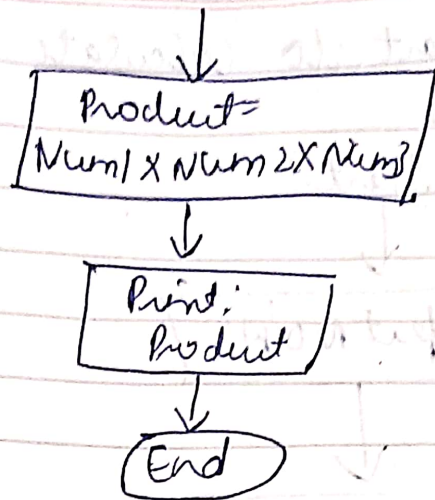 Product=
Num1 X Num2 X Num3
Print:
Product
End